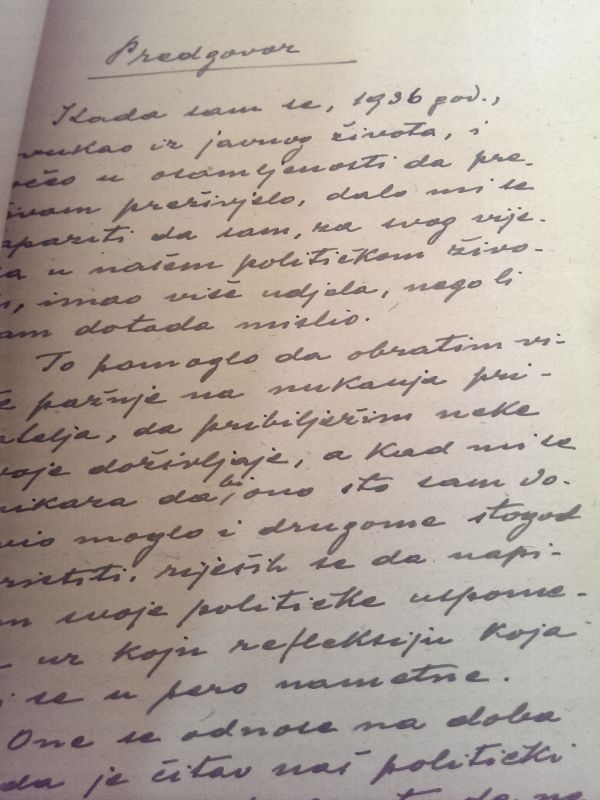 Predgovor
Kada sam se, 1936 god.,
vukao iz javnog života, i
očeo u osamljenosti da pre-
živam preživjelo, dalo mi se
apaziti da sam, za svog vije-
ka u našem političkom živo-
imao više udjela, nego li
sam dotada mislio.
To pomoglo da obratim vi-
še pažnje na nukanja pri-
atelja, da pribilježim neke
svoje doživljaje, a kad mi se
nikara da bi ono što sam do-
vio moglo i drugome štogod
ristiti, riješih se da napi-
svoje političke uspome-
uz koju refleksiju koja
mi se u pero nametne.
One se odnose na doba
da je čitav naš politički